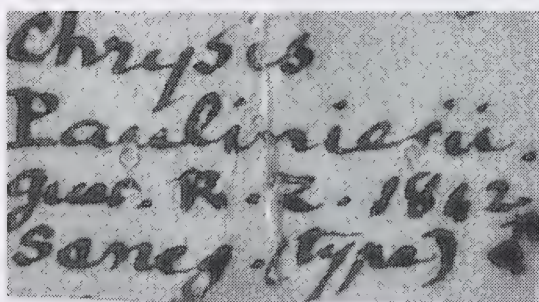 Chrysis
Paulinierii.
guer. R. Z. 1842
Seneg. (Type)